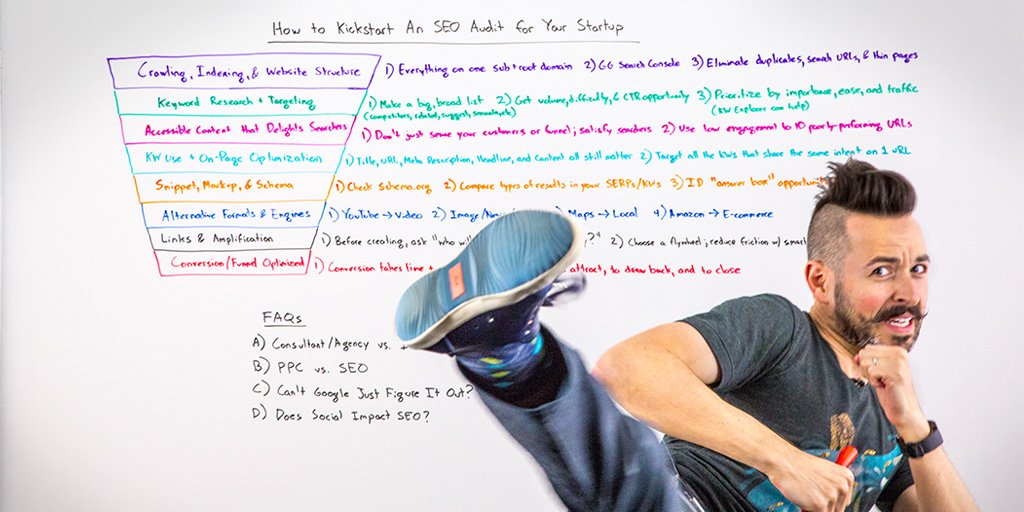 How to Kickstart An SEO Audit for Your Startup
Crawling, Indexing, & Website Structure 1) Everything on one sub+root domain 2) GG Search Console 3) Eliminate duplicates, search URLs, & thin pages
Keyword Research + Targeting 1) Make a big, broad list 2) Get volume, difficulty, & CTR opportunity 3) Prioritize by importance, ease, and traffic
(competitors, related, suggest, etc) (KW Explorer can help)
Accessible Content that Delights Searchers 1) Don't just serve your customers or funnel; satisfy searchers 2) Use low engagement to ID poorly-performing URLs
KW Use + On-Page Optimization 1) Title, URL, Meta Description, Headline, and Content all still matter 2) Target all the KWs that share the same intent on 1 URL
Snippet, Markup, & Schema 1) Check Schema.org 2) Compare types of results in your SERPs/KWs 3) ID "answer box"
Alternative Formats & Engines 1) YouTube → Video 2) Image/ Maps → Local 4) Amazon → E-commerce
Links & Amplification 1) Before creating, ask "who ?" 2) Choose a flywheel; reduce friction w/
Conversion/Funnel Optimized 1) Conversion takes time + attract, to draw back, and to close
FAQs
A) Consultant/Agency vs.
B) PPC vs. SEO
C) Can't Google Just Figure It Out?
D) Does Social Impact SEO?